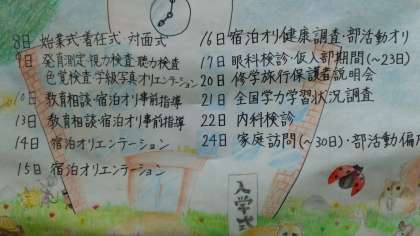 8日 始業式・着任式・対面式
9日 発育測定・視力検査・聴力検査
色覚検査・学級写真・オリエンテーション
10日 教育相談・宿泊オリ事前指導
13日 教育相談・宿泊オリ事前指導
14日 宿泊オリエンテーション
15日 宿泊オリエンテーション
16日 宿泊オリ健康調査・部活動オリ
17日 眼科検診・仮入部期間(~23日)
20日 修学旅行保護者説明会
21日 全国学力学習状況調査
22日 内科検診
24日 家庭訪問(~30日)・部活動編成
入学式